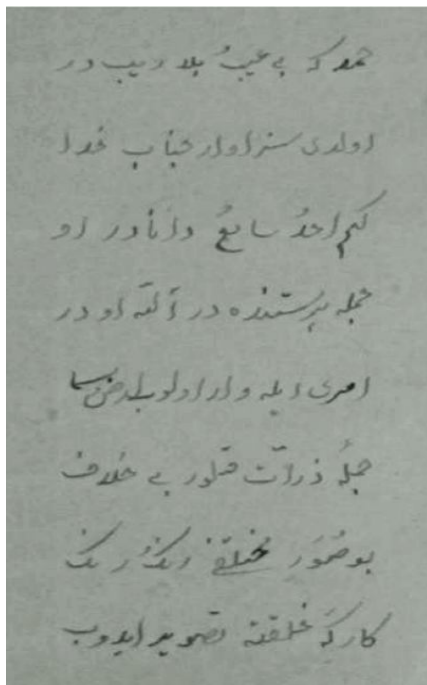 حمد كه بی عیبُ بلا ریب در
اولدی سزاوار جناب خدا
كیم احدُ سامعُ دانادر او
جمله پرستنده در آلّه او در
امری ایله وار اولوب ارض سما
جملهٔ ذرات قلور بی خلاف
بو صُوَرِ مختلفهٔ رنكُ رنك
كاركَهِ خلقته تصویر ایدوب